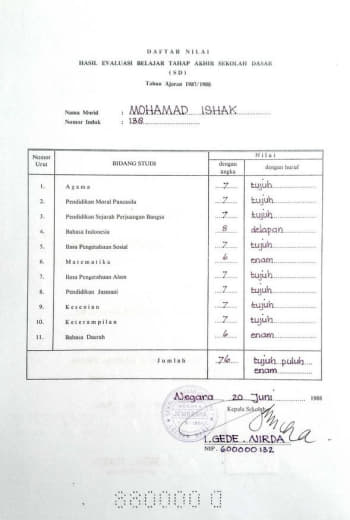 DAFTAR NILAI
HASIL EVALUASI BELAJAR TAHAP AKHIR SEKOLAH DASAR
(SD)
Tahun Ajaran 1987/1988
Nama Murid : MOHAMAD ISHAK
Nomor Induk : 138
Nomor Urut BIDANG STUDI Nilai
dengan angka dengan huruf
1. Agama 7 tujuh
2. Pendidikan Moral Pancasila 7 tujuh
3. Pendidikan Sejarah Perjuangan Bangsa 7 tujuh
4. Bahasa Indonesia 8 delapan
5. Ilmu Pengetahuan Sosial 7 tujuh
6. Matematika 6 enam
7. Ilmu Pengetahuan Alam 7 tujuh
8. Pendidikan Jasmani 7 tujuh
9. Kesenian 7 tujuh
10. Keterampilan 7 tujuh
11. Bahasa Daerah 6 enam
Jumlah 76 tujuh puluh
enam
Negara 20 Juni 1988
Kepala Sekolah
I. GEDE. NIRDA
NIP. 600000132